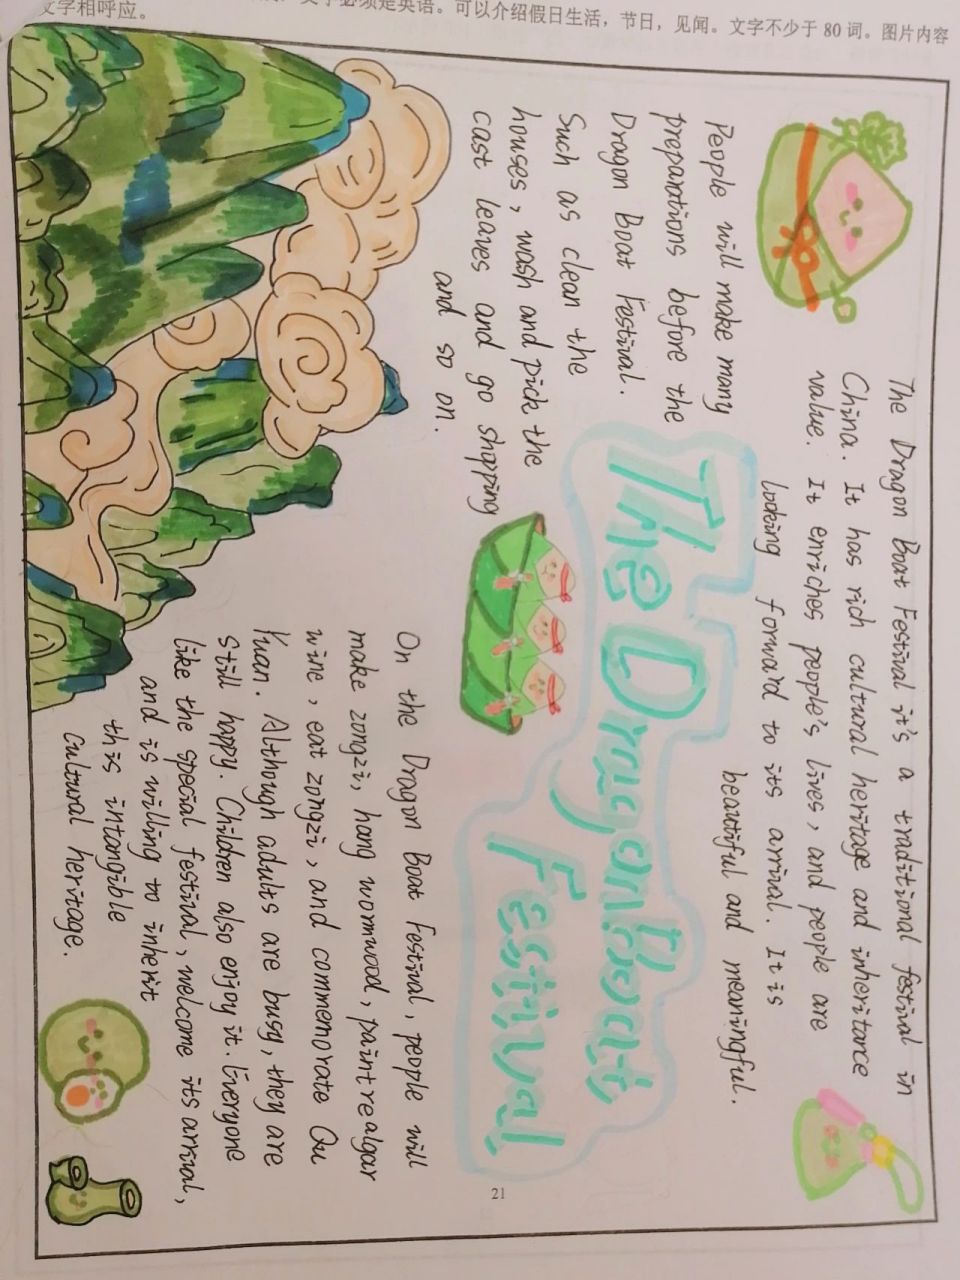 文字必须是英语。可以介绍假日生活，节日，见闻。文字不少于 80 词。图片内容
文字相呼应。
The Dragon Boat Festival it's a traditional festival in
China. It has rich cultural heritage and inheritance
value. It enriches people's lives, and people are
looking forward to its arrival. It is
beautiful and meaningful.
People will make many
preparations before the
Dragon Boat Festival.
Such as clean the
houses, wash and pick the
cast leaves and go shopping
and so on.
The Dragon Boat
Festival
On the Dragon Boat Festival, people will
make zongzi, hang wormwood, paint realgar
wine, eat zongzi, and commemorate Qu
Yuan. Although adults are busy, they are
still happy. Children also enjoy it. Everyone
like the special festival, welcome its arrival,
and is willing to inherit
this intangible
cultural heritage.
21